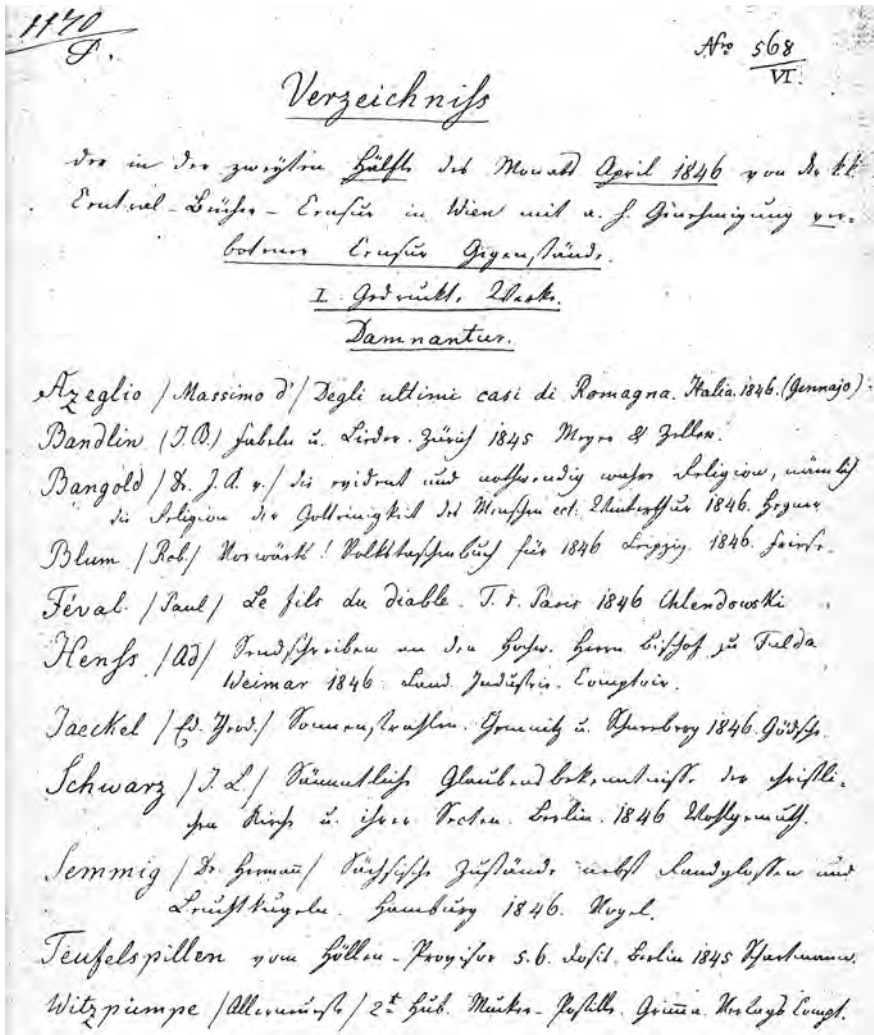 1170
P.
Nro 568
VI.
Verzeichniss
der in der zweyten Hälfte des Monats April 1846 von der k. k.
Central-Bücher-Censur in Wien mit a. h. Genehmigung ver-
botenen Censur Gegenstände.
I. Gedruckte Werke.
Damnantur.
Azeglio /Massimo d'/ Degli ultimi casi di Romagna. Italia. 1846. (Gennajo)
Bandlin (J. B.) Fabeln u. Lieder. Zürich 1845 Meyer & Zeller.
Bangold /Dr. J. A. v./ die evident und nothwendig wahre Religion, nämlich
die Religion der Gotteinigkeit des Menschen ect. Winterthur 1846. Hegner
Blum /Rob./ Vorwärts! Volkstaschenbuch für 1846 Leipzig. 1846. Friese.
Féval. /Paul/ Le fils du diable. T. 8. Paris 1846 Chlendowski
Henss /Ad/ Sendschreiben an den Hochw. Herrn Bischof zu Fulda
Weimar 1846. Land. Industrie-Comptoir.
Jaeckel /Ed. Theod./ Sonnenstrahlen. Chemnitz u. Schneeberg 1846. Gödsche.
Schwarz /J. L./ Sämmtliche Glaubensbekenntnisse der christli-
chen Kirche u. ihrer Secten. Berlin. 1846 Wohlgemuth.
Semmig /Dr. Hermañ/ Sächsische Zustände nebst Randglossen und
Leuchtkugeln. Hamburg 1846. Vogel.
Teufelspillen vom Höllen-Provisor 5. 6. Dosis. Berlin 1845 Schartmann.
Witzpumpe /Allerneueste/ 2t Hub. Mucker-Postille. Grimma. Verlags Compt.